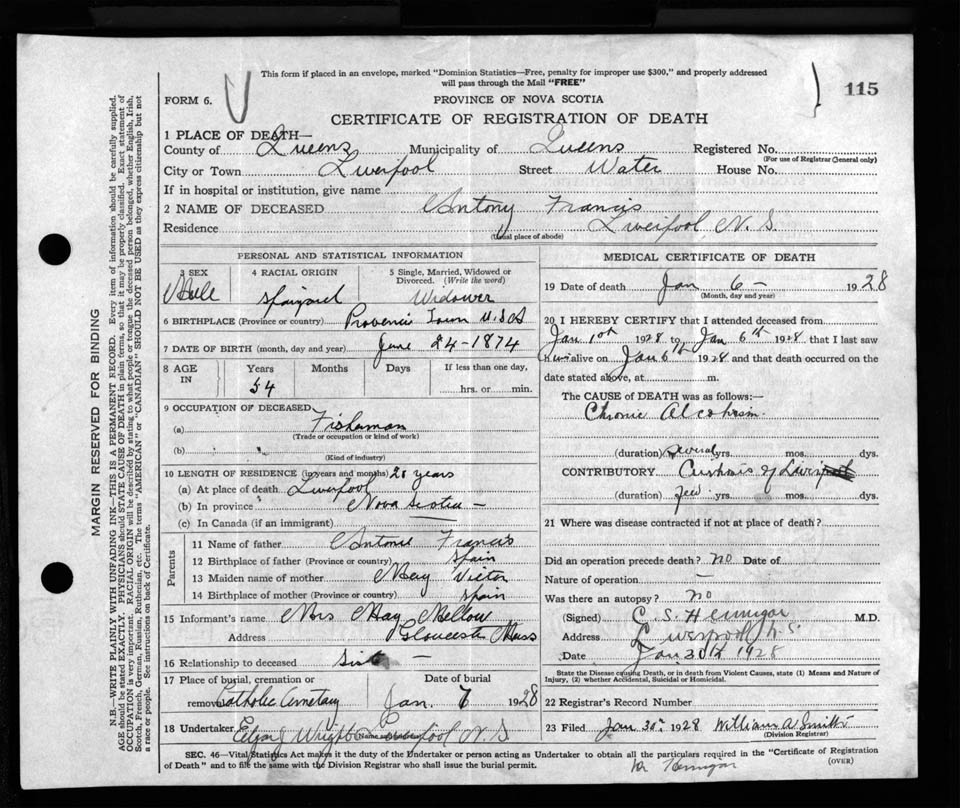 This form if placed in an envelope, marked "Dominion Statistics—Free, penalty for improper use $300," and properly addressed
will pass through the Mail "FREE"
115
FORM 6.
PROVINCE OF NOVA SCOTIA
CERTIFICATE OF REGISTRATION OF DEATH
1 PLACE OF DEATH—
County of Queens Municipality of Queens Registered No.
(For use of Registrar General only)
City or Town Liverpool Street Water House No.
If in hospital or institution, give name
2 NAME OF DECEASED Antony Francis
Residence Liverpool N. S.
(Usual place of abode)
PERSONAL AND STATISTICAL INFORMATION
3 SEX 4 RACIAL ORIGIN 5 Single, Married, Widowed or
Divorced. (Write the word)
Male Spaiyard Widower
6 BIRTHPLACE (Province or country) Provence Town U.S.A
7 DATE OF BIRTH (month, day and year) June 24-1874
8 AGE IN Years Months Days If less than one day,
54 hrs. or min.
9 OCCUPATION OF DECEASED
(a) Fisherman
(Trade or occupation or kind of work)
(b)
(Kind of industry)
10 LENGTH OF RESIDENCE (in years and months) 28 years
(a) At place of death Liverpool
(b) In province Nova Scotia —
(c) In Canada (if an immigrant)
Parents
11 Name of father Antone Francis
12 Birthplace of father (Province or country) Spain
13 Maiden name of mother May Victor
14 Birthplace of mother (Province or country) Spain
15 Informant's name Mrs May Mellow
Address Gloucester Mass
16 Relationship to deceased Sister —
17 Place of burial, cremation or Date of burial
removal Catholic Cemetary Jan. 7 1928
18 Undertaker Edgar Wright Liverpool N S
MEDICAL CERTIFICATE OF DEATH
19 Date of death Jan 6 — 1928
(Month, day and year)
20 I HEREBY CERTIFY that I attended deceased from
Jan 1st 1928 to Jan 6th 1928 that I last saw
him alive on Jan 6th 1928 and that death occurred on the
date stated above, at m.
The CAUSE of DEATH was as follows:
Chronic Alcoholism
(duration) several yrs. mos. dys.
CONTRIBUTORY Cirrhosis of Liver
(duration) few yrs. mos. dys.
21 Where was disease contracted if not at place of death?
Did an operation precede death? No Date of
Nature of operation —
Was there an autopsy? No
(Signed) C. S. Hennigar M.D.
Address Liverpool N.S.
Date Jan 30th 1928
State the Disease Causing Death, or in death from Violent Causes, state (1) Means and Nature of
Injury, (2) whether Accidental, Suicidal or Homicidal.
22 Registrar's Record Number
23 Filed Jan 30th 1928 William A Smith
(Division Registrar)
SEC. 46—Vital Statistics Act makes it the Duty of the Undertaker or person acting as Undertaker to obtain all the particulars required in the "Certificate of Registration
of Death" and to file the same with the Division Registrar who shall issue the burial permit.
(OVER)
Hennigar
MARGIN RESERVED FOR BINDING
N.B.—WRITE PLAINLY WITH UNFADING INK—THIS IS A PERMANENT RECORD. Every item of information should be carefully supplied.
AGE should be stated EXACTLY. PHYSICIANS should STATE CAUSE OF DEATH in plain terms, so that it may be properly classified. Exact statement of
OCCUPATION is very important. RACIAL ORIGIN will be described by stating to what people or tongue the deceased person belonged, whether English, Irish,
Scotch, French, German, Russian, Ruthenian, etc. The terms "AMERICAN" or "CANADIAN" SHOULD NOT BE USED as they express citizenship but not
a race or people. See instructions on back of Certificate.